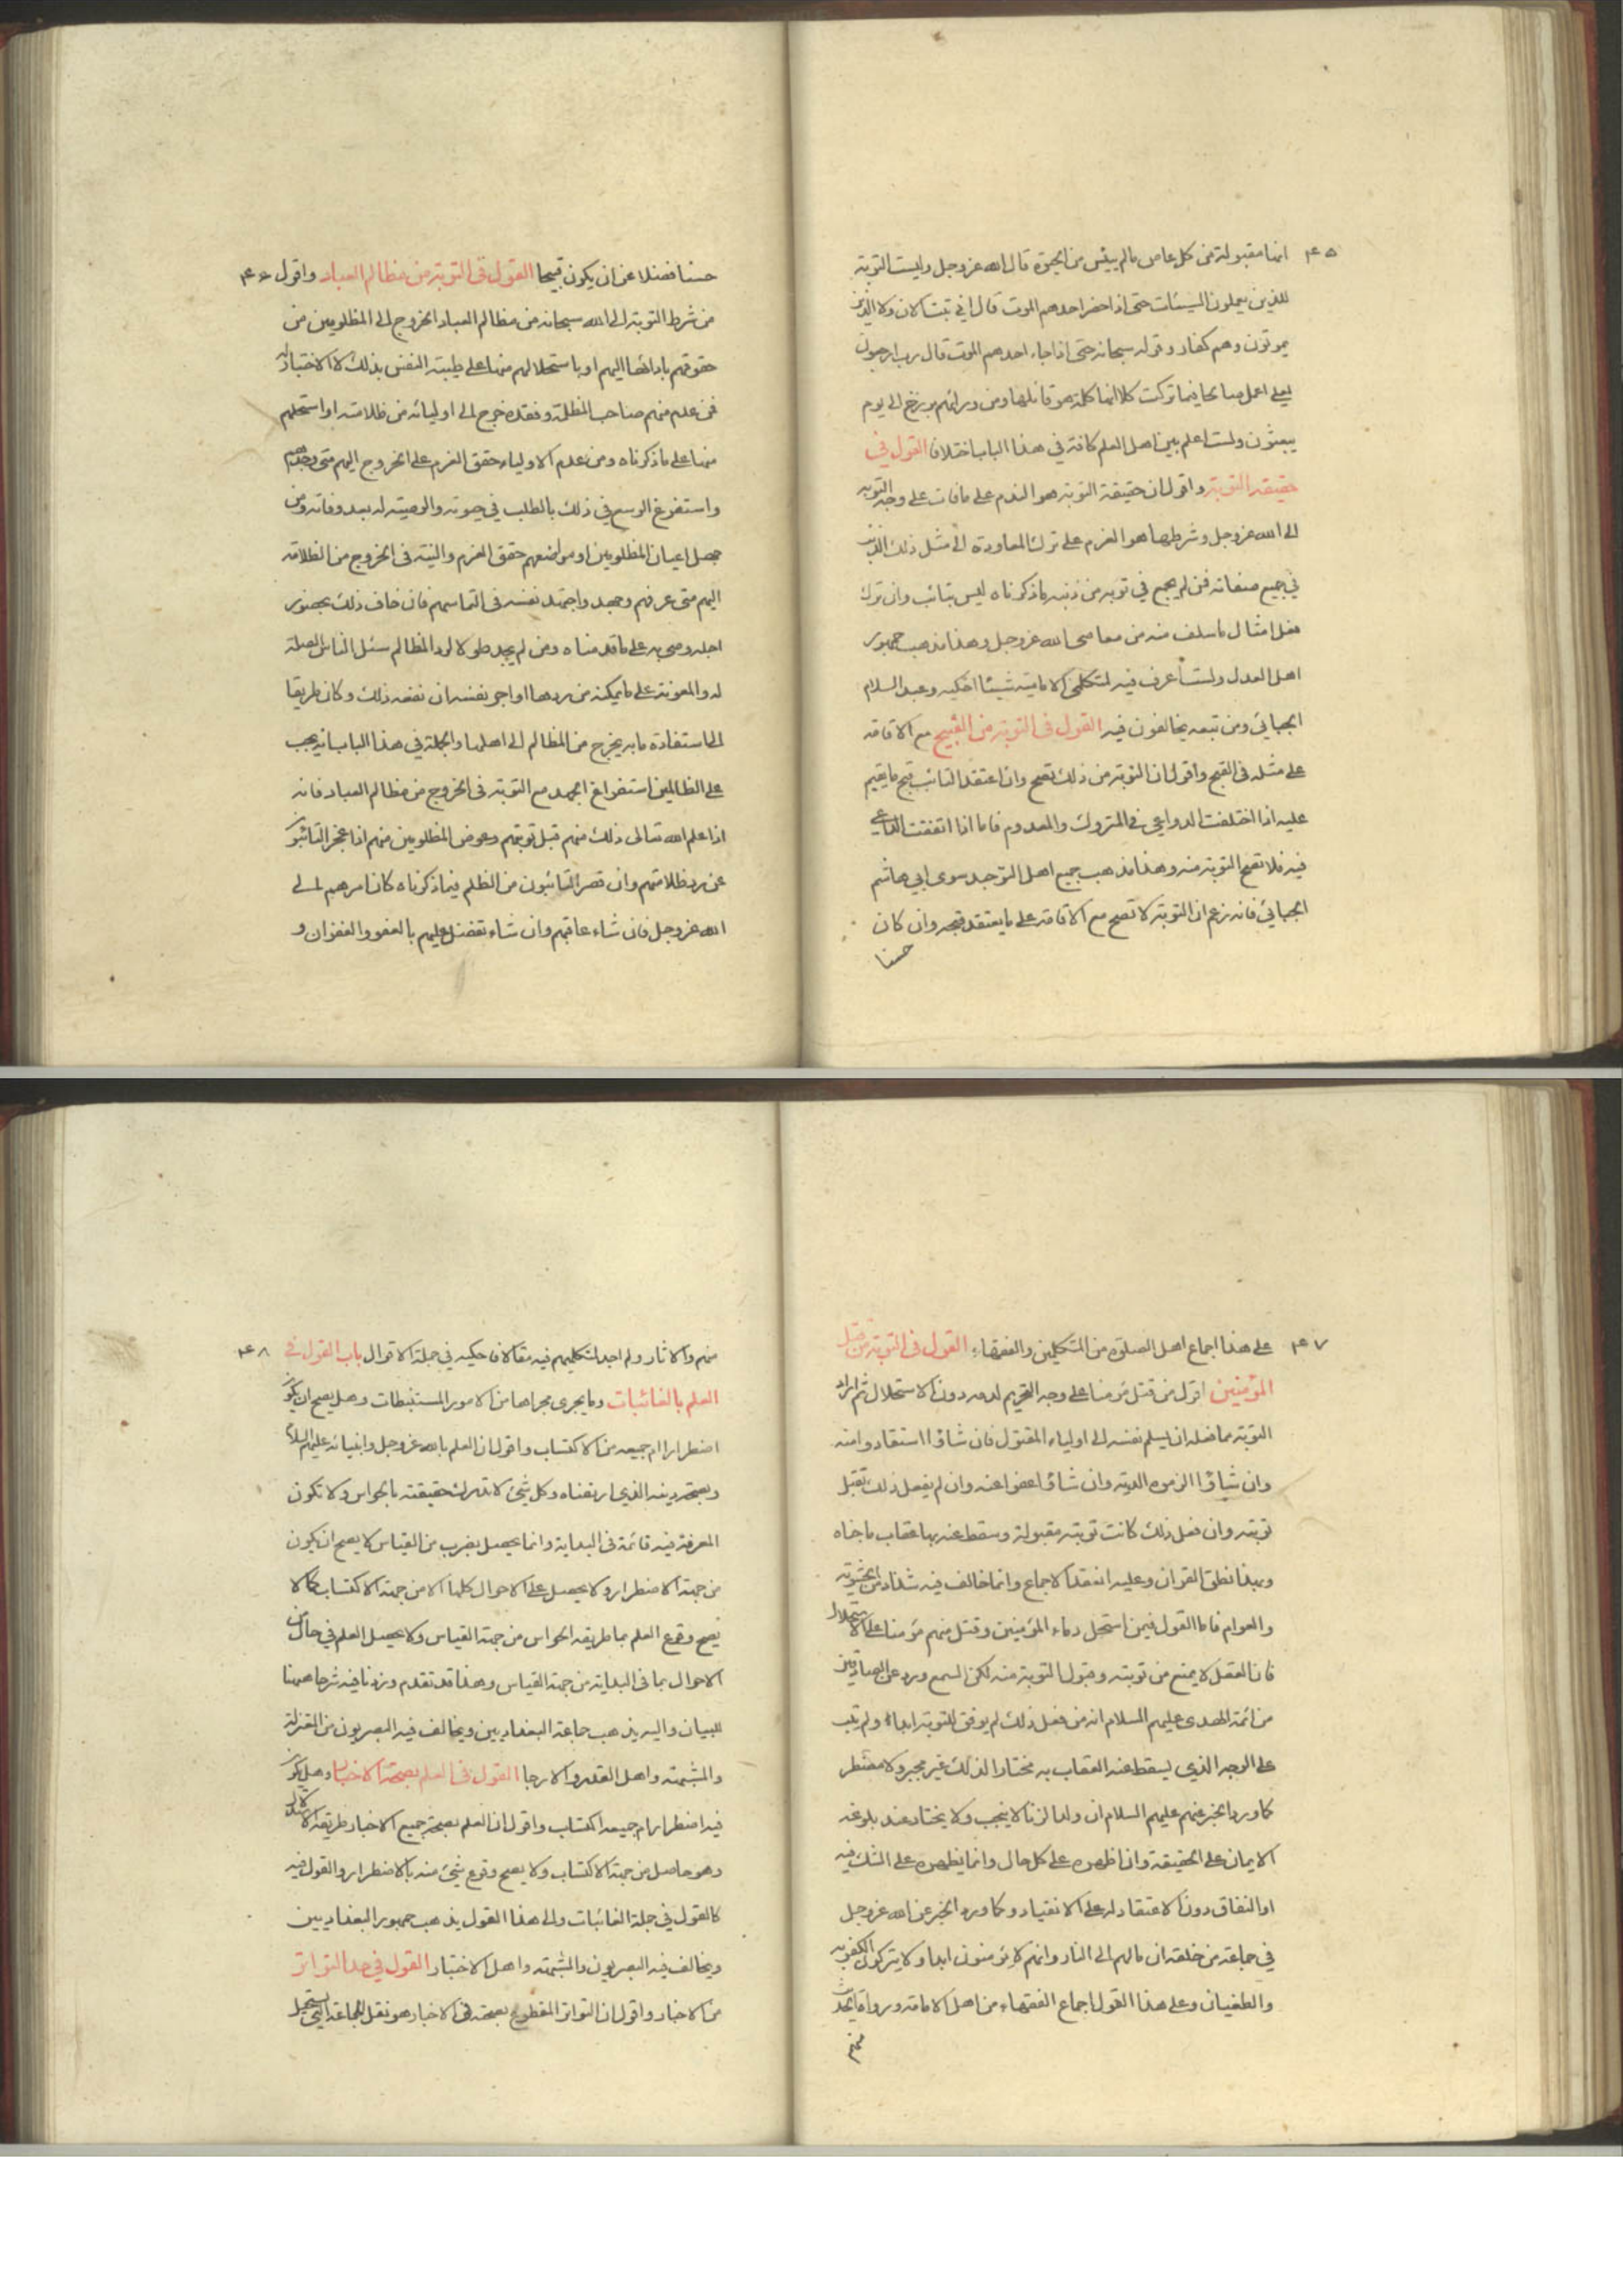 ۴۵
انها مقبولة من كل عاص مالم ييئس من الحيوة قال الله عز وجل وليست التوبة
للذين يعملون السيئات حتى اذا حضر احدهم الموت قال اني تبت الان ولا الذين
يموتون وهم كفار وقوله سبحانه حتى اذا جاء احدهم الموت قال رب ارجعون
لعلي اعمل صالحا فيما تركت كلا انها كلمة هو قائلها ومن ورائهم برزخ الى يوم
يبعثون ولست اعلم بين اهل العلم كافة في هذا الباب اختلاف القول في
حقيقة التوبة واقول ان حقيقة التوبة هو الندم على مافات على وجه التوبة
الى الله عز وجل وشرطها هو العزم على ترك المعاودة الى مثل ذلك الذنب
في جميع صفاته فمن لم يجمع في توبه من ذنبه ماذكرناه ليس بتائب وان ترك
فعل امثال ماسلف منه من معاصى الله عز وجل وهذا مذهب جمهور
اهل العدل ولست أعرف فيه لمتكلمى الامامية شيئا احكيه وعبد السلام
الجبائي ومن تبعه يخالفون فيه القول فى التوبة من القبيح مع الاقامة
على مثله فى القبح واقول ان التوبة من ذلك تصح وان اعتقد التائب قبح مايقيم
عليه اذا اختلفت الدواعي في المتروك والمعدوم فاما اذا اتفقت الدواعي
فيه فلا تصح التوبة منه وهذا مذهب جميع اهل التوحيد سوى ابي هاشم
الجبائي فانه زعم ان التوبة لا تصح مع الاقامة على مايعتقد قبحه وان كان
حسنا
۴۶
حسنا فضلا عن ان يكون قبيحا القول فى التوبة من مظالم العباد واقول
من شرط التوبة الى الله سبحانه من مظالم العباد الخروج الى المظلومين من
حقوقهم بادائها اليهم او باستحلالهم منها على طيبة النفس بذلك لا الاختيار له
فمن عدم منهم صاحب المظلمة وفقده خرج الى اوليائه من ظلامته او استحلهم
منها على ماذكرناه ومن عدم الاولياء حقق العزم على الخروج اليهم متى وجدهم
واستفرغ الوسع في ذلك بالطلب في حيوته والوصية له بعد وفاته ومن
جهل اعيان المظلومين او مواضعهم حقق العزم والنية فى الخروج من الظلامة
اليهم متى عرفهم وجهد واجتهد نفسه فى التماسهم فان خاف ذلك بحضور
اجله وصى به على ماقدمناه ومن لم يجد طولا لرد المظالم سئل الناس الصلة
له والمعونة على مايمكنه من ردها او اجر نفسه ان نفعه ذلك وكان طريقا
الى استفادة مابه يخرج من المظالم الى اهلها والجملة في هذا الباب انه يجب
على الظالمين استفراغ الجهد مع التوبة فى الخروج من مظالم العباد فانه
اذا علم الله تعالى ذلك منهم قبل توبتهم وعوض المظلومين منهم اذا عجز التائبون
عن رد ظلامتهم وان قصر التائبون من الظلم فيما ذكرناه كان امرهم الى
الله عز وجل فان شاء عاقبهم وان شاء تفضل عليهم بالعفو والغفران و
۴۷
على هذا اجماع اهل الصلوة من المتكلمين والفقهاء القول فى التوبة من قتل
المؤمنين اقول من قتل مؤمنا على وجه التحريم لدمه دون الاستحلال ثم اراد
التوبة مما فعله ان يسلم نفسه الى اولياء المقتول فان شاؤا استقادوا منه
وان شاؤا الزموه الدية وان شاؤا عفوا عنه وان لم يفعل ذلك لم تقبل
توبته وان فعل ذلك كانت توبته مقبولة وسقط عنه بها عقاب ماجناه
وبهذا نطق القران وعليه انعقد الاجماع وانما خالف فيه شذاذ من الحشوية
والعوام فاما القول فيمن استحل دماء المؤمنين وقتل منهم مؤمنا على الاستحلال
فان العقل لا يمنع من توبته وقبول التوبة منه لكن السمع ورد عن الصادقين
من ائمة الهدى عليهم السلام انه من فعل ذلك لم يوفق للتوبة ابدا ولم يتب
على الوجه الذي يسقط عنه العقاب به مختارا لذلك غير مجبر ولا مضطر
كما ورد الخبر عنهم عليهم السلام ان ولد الزنا لا ينجب ولا يختار عند بلوغه
الايمان على الحقيقة وان اظهره على كل حال وانما يظهره على الشك فيه
او النفاق دون الاعتقاد له على الانقياد وكما ورد الخبر عن الله عز وجل
في جماعة من خلقه ان مالهم الى النار وانهم لا يؤمنون ابدا ولا يتركون الكفر به
والطغيان وعلى هذا القول اجماع الفقهاء من اهل الامامة ورواة الحديث
منهم
۴۸
منهم والاثار ولم اجد لمتكلميهم فيه مقالا فاحكيه في جملة الاقوال باب القول في
العلم بالغائبات ومايجرى مجراها من الامور المستنبطات وهل يصح ان يكون
اضطرارا ام جميعه من الاكتساب واقول ان العلم بالله عز وجل وانبيائه عليهم السلام
وبصحة دينه الذي ارتضاه وكل شئ لا تدرك حقيقته بالحواس ولا تكون
المعرفة فيه قائمة فى البداية وانما يحصل بضرب من القياس لا يصح ان يكون
من جهة الاضطرار ولا يحصل على الاحوال كلها الا من جهة الاكتساب كما لا
يصح وقوع العلم بما طريقه الحواس من جهة القياس ولا يحصل العلم في حال من
الاحوال بما فى البداية من جهة القياس وهذا قد تقدم وزدنا فيه شرحا ههنا
للبيان واليه يذهب جماعة البغداديين ويخالف فيه البصريون من المعتزلة
والمشبهة واهل القدر والارجا القول فى العلم بصحة الاخبار وهل يكون
فيه اضطرار ام جميعه اكتساب واقول ان العلم بصحة جميع الاخبار طريقه الاستدلال
وهو حاصل من جهة الاكتساب ولا يصح وقوع شئ منه بالاضطرار والقول فيه
كالقول في جملة الغائبات والى هذا القول يذهب جمهور البغداديين
ويخالف فيه البصريون والمشبهة واهل الاختبار القول في حد التواتر
من الاخبار واقول ان التواتر المقطوع بصحته فى الاخبار هو نقل الجماعة التي يستحيل